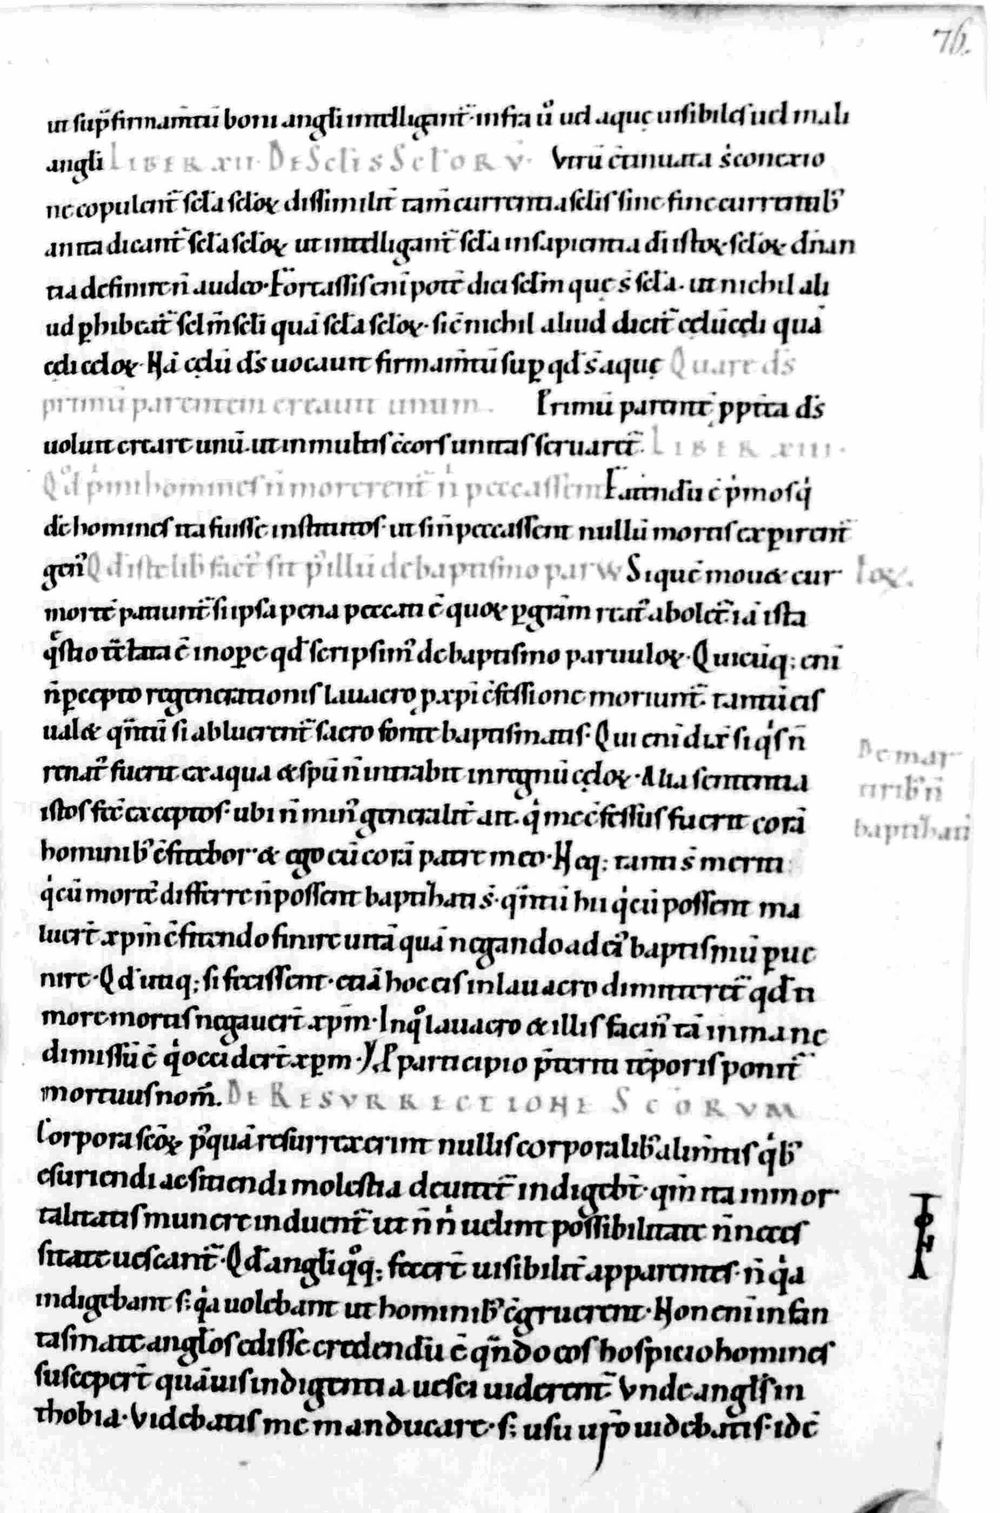 76.
ut sup̄ firmam̄tū boni angli intelligant᷑. infra ū uel aquę uisibiles uel mali
angli LIBER XII. DE SCLIS SCLORV̄. Vtrū c̄tinuata s̄ conexio
ne copulent᷑ scl̄a scl̄oꝝ dissimilit᷑ tam̄ currentia sclis sine fine currentib᷒
an ita dicant᷑ scl̄a scl̄oꝝ ut intelligant᷑ scl̄a in sapientia di istoꝝ scl̄oꝝ dn̄an
tia definire n̄ audeo. Fortassis eni potē dici scl̄m quę s̄ scl̄a. ut nichil ali
ud ꝑhibeat᷑ scl̄m scl̄i quā scl̄a scl̄oꝝ. sic̄ nichil aliud dicit᷑ cęlū cęli quā
cęli cęloꝝ. Nā cęlū ds̄ uocauit firmam̄tū suꝑ qd̄ s̄ aquę Quare ds̄
primū parentem creauit unum. Primū parent̄ ꝓpt̄ea ds̄
uoluit creare unū. ut in multis c̄cors unitas seruaret᷑. LIBER XIII.
Qd̄ pmi homines n̄ morerent᷑ n̄ peccassent Fatendū ē pmos q
dē homines ita fuisse institutos. ut si n̄ peccassent nullū mortis expirent᷑
gen᷒ Qd̄ iste lib̄ fact᷒ sit p᷒ illū de baptismo parvv Si quē mouet cur loꝝ.
mortē patiunt᷑ si ipsa pena peccati ē quoꝝ ꝑ grām reat᷒ abolet᷑. iā ista
q̄stio tctata ē in oꝑe qd̄ scripsim᷒ de baptismo paruuloꝝ. Quicūq; eni
n̄ ꝑcepto regenerationis lauacro ꝓ xp̄i c̄fessione moriunt᷑. tantū eis
ualet qn̄tū si abluerent᷑ sacro fonte baptismatis. Qui eni dix̄ si qs n̄ De mar
renat᷒ fuerit ex aqua et spū n̄ intrabit in regnū cęloꝝ. Alia sententia tirib᷒ n̄
istos fec̄ exceptos. ubi n̄ min᷒ generalit᷑ ait. q me c̄fessus fuerit corā baptizati
hominib᷒ c̄fitebor et ego eū corā patre meo. Heq; tanti s̄ meriti
q cū mortē differre n̄ possent baptizati s̄. qn̄tū hii q cū possent ma
luert̄ xp̄m c̄fitendo finire uitā quā negando ad ei᷒ baptismū ꝑue
nire. Qd̄ utiq; si fecissent. etiā hoc eis in lauacro dimitteret᷑ qd̄ ti
more mortis negauert̄ xp̄m. In qo lauacro et illis facin᷒ tā inmane
dimissū ē q occidert̄ xp̄m. participio p̄teriti tēporis ponit᷑
mortuus nom̄. DE RESVRRECTIONE SCORVM
Corpora scōꝝ p᷒quā resurrexerint nullis corporalib᷒ alim̄tis qb᷒
esuriendi ac sitiendi molestia deuitet᷑ indigebt̄. qm̄ ita inmor
talitatis munere induent᷑ ut n̄ n̄ uelint possibilitate n̄ neces
sitate uescant᷑. Qd̄ angli qoq; fecert̄ uisibilit᷑ apparentes. n̄ qa
indigebant s; qa uolebant ut hominib᷒ c̄gruerent. Non eni in fan
tasmate anglos edisse credendū ē qn̄do eos hospicio homines
susceꝑert̄ quāuis indigentia uesci uiderent᷑. Vnde angls̄ in
thobia. Videbatis me manducare. s; usu uro uidebatis. idē